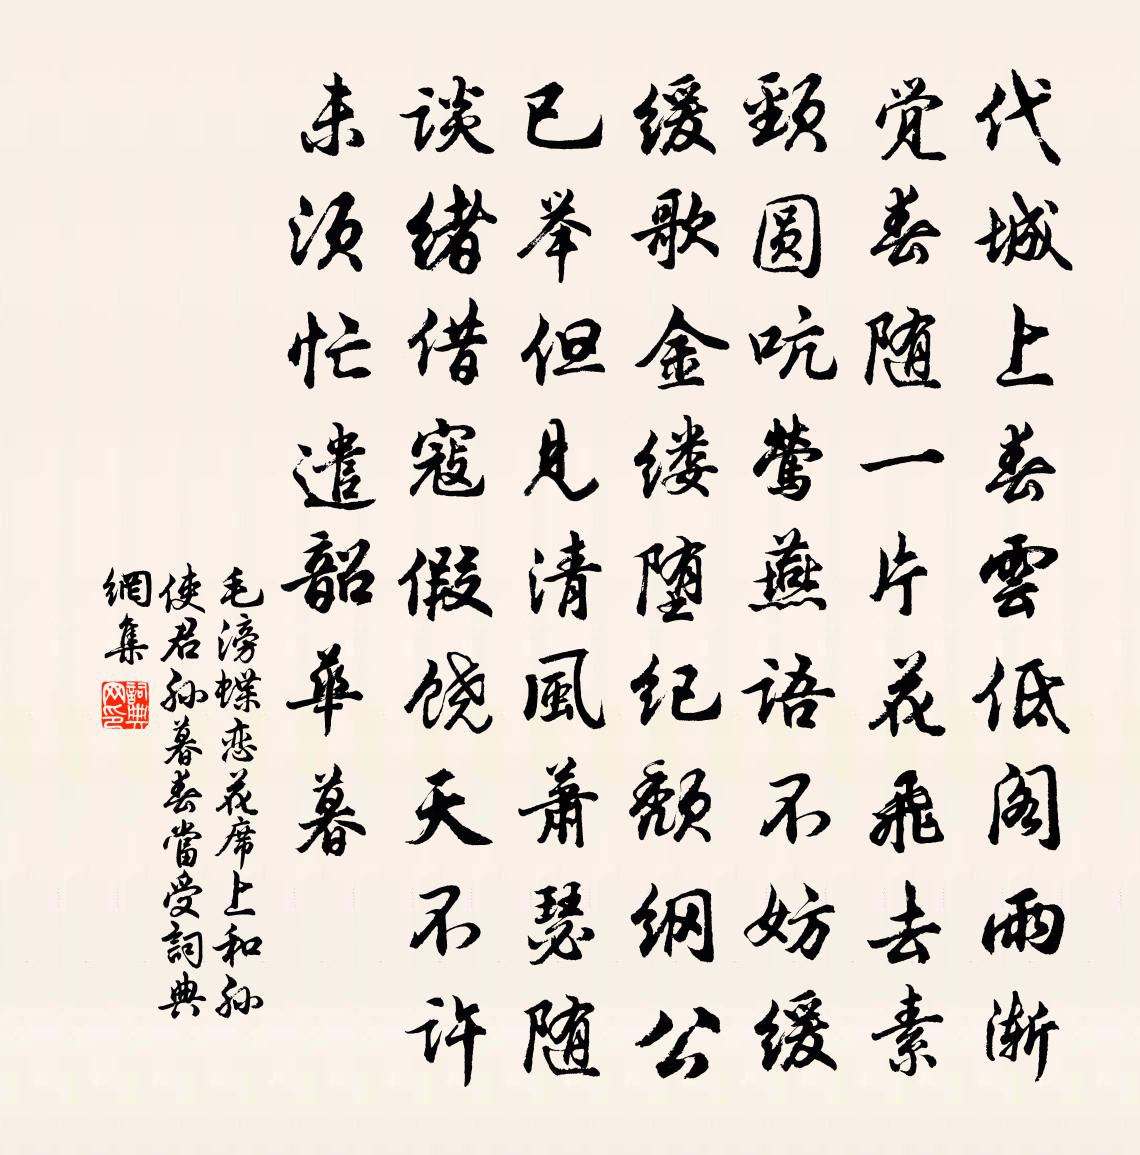 代城上春雲低阁雨渐
觉春随一片花飛去素
頸圆吭莺燕语不妨缓
缓歌金缕堕纪颓纲公
已举但见清風萧瑟随
谈绪借寇假饶天不许
未须忙遣韶華暮
毛滂蝶恋花席上和孙
使君孙暮春當受詞典
網集
詞典网印